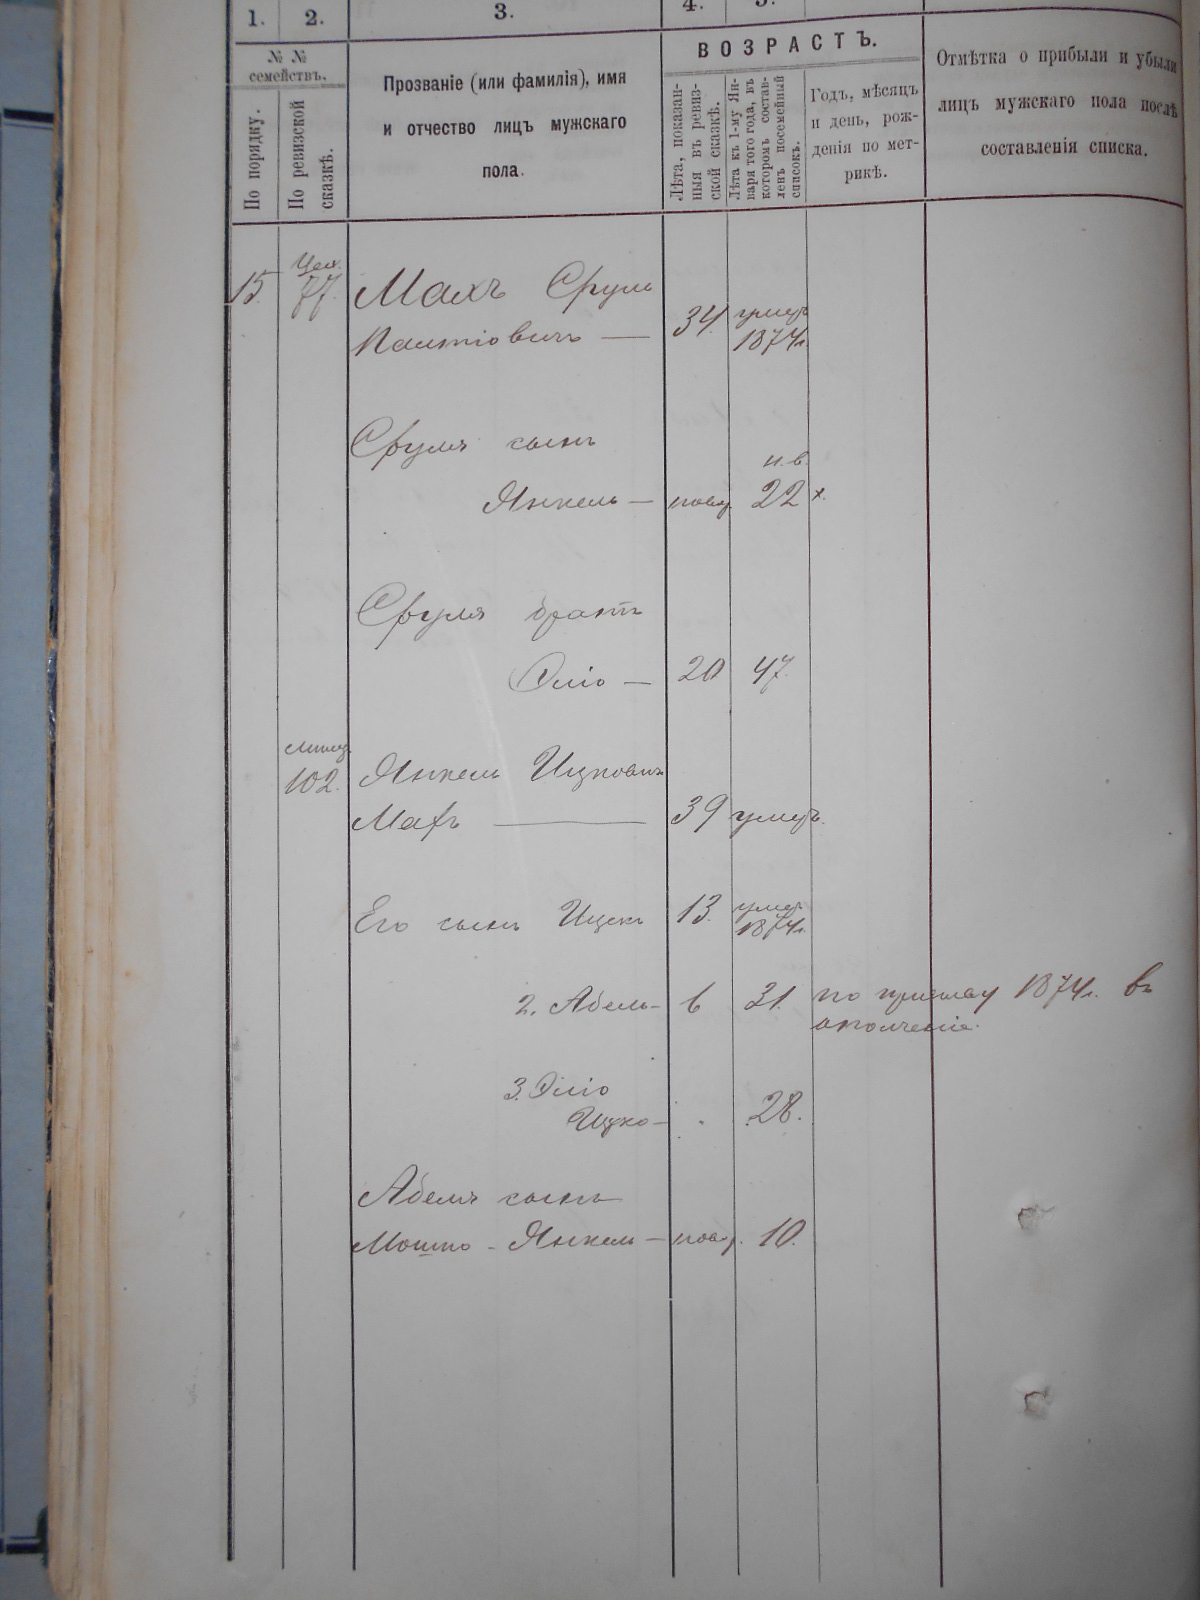 1.
2.
3.
4.
5.
№ №
семействъ.
По порядку.
По ревизской
сказкѣ.
Прозваніе (или фамилія), имя
и отчество лицъ мужскаго
пола.
ВОЗРАСТЪ.
Лѣта, показан-
ныя въ ревиз-
ской сказкѣ.
Лѣта къ 1-му Ян-
варя того года, въ
которомъ состав-
ленъ посемейный
списокъ.
Годъ, мѣсяцъ
и день, рож-
денія по мет-
рикѣ.
Отмѣтка о прибыли и убыли
лицъ мужскаго пола послѣ
составленія списка.
Цех.
15. 77. Махъ Сруль
34. умеръ
1874г.
Сруля сынъ
н.в.
Янкель — новор. 22 х.
Сруля братъ
Эліо — 20 47.
102. Янкель Ицковичъ
Махъ — 39 умеръ.
Его сынъ Ицекъ 13. умеръ
1874г.
2. Абель — 6 31. по призыву 1874г. въ
ополченіе.
3. Эліо
Ицко — . 28.
Абеля сынъ
Мошко - Янкель — новор. 10.